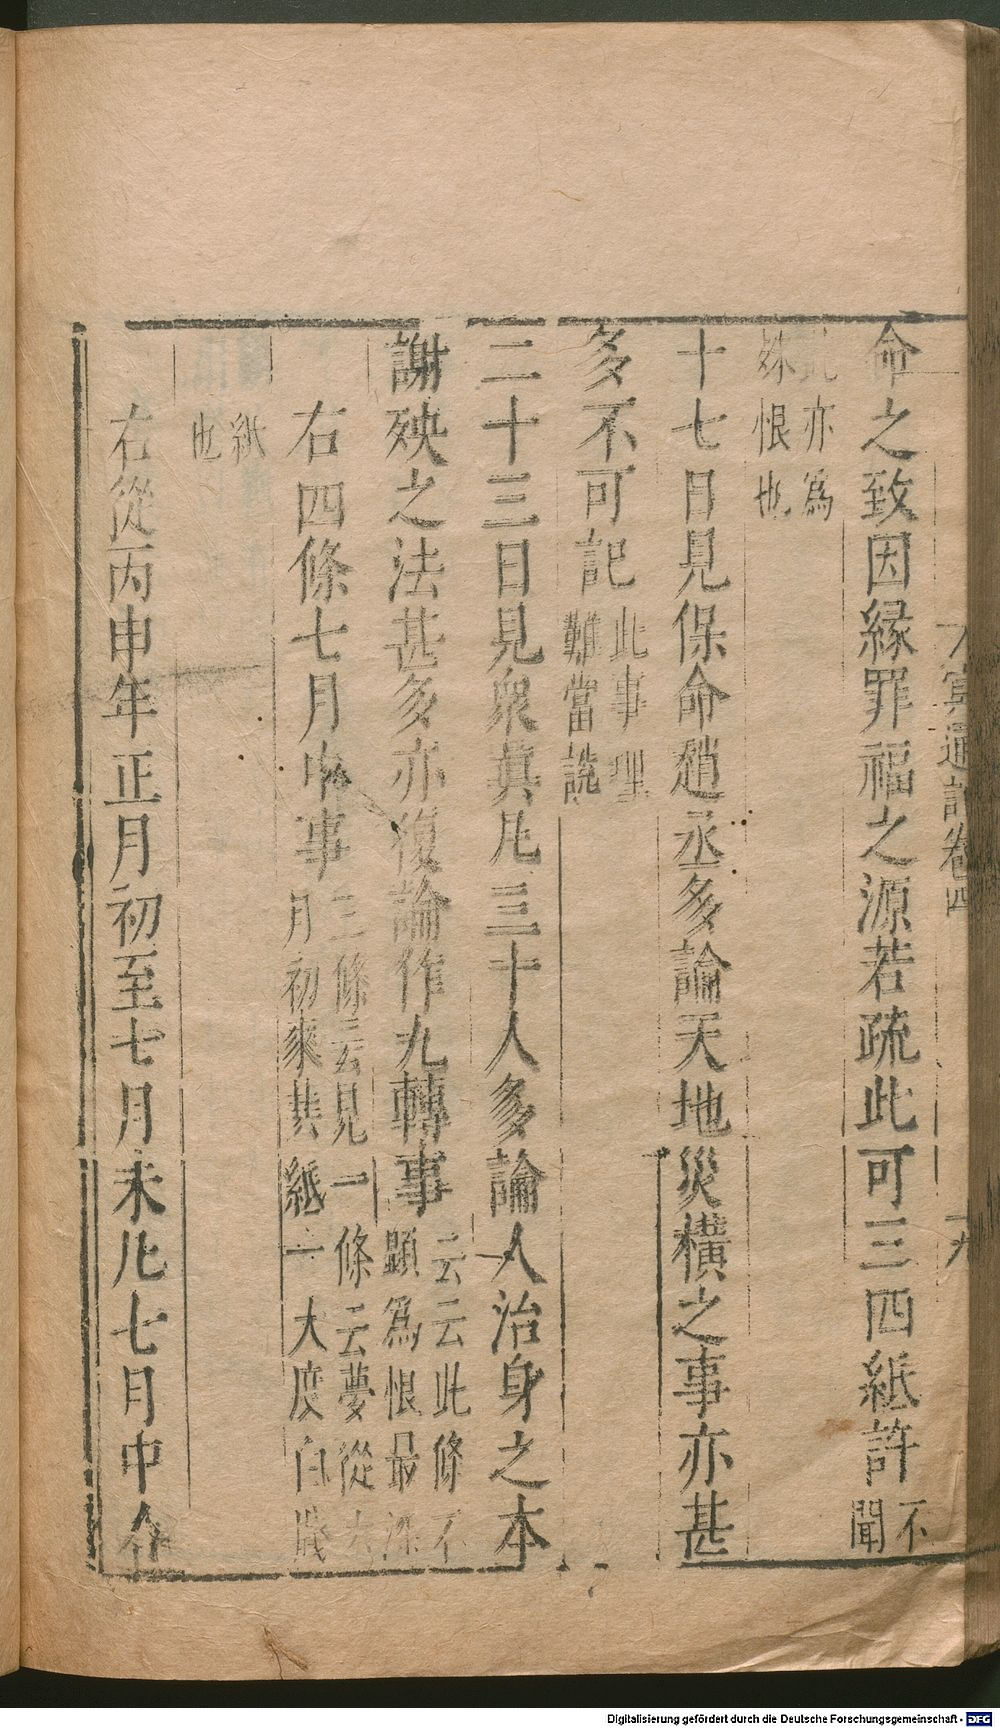 命之致因縁罪福之源若疏此可三四紙許不聞
此亦為殊恨也
十七日見保命趙丞多論天地災橫之事亦甚
多不可記此事理難當說
二十三日見衆真凡三十人多論人治身之本
謝殃之法甚多亦復論作九轉事云云此條不顕為恨最深
右四條七月中事三條云見一條云夢從大月初來共紙一大度白牋
紙也
右從丙申年正月初至七月末凡七月中合
冥通記卷四
Digitalisierung gefördert durch die Deutsche Forschungsgemeinschaft - DFG